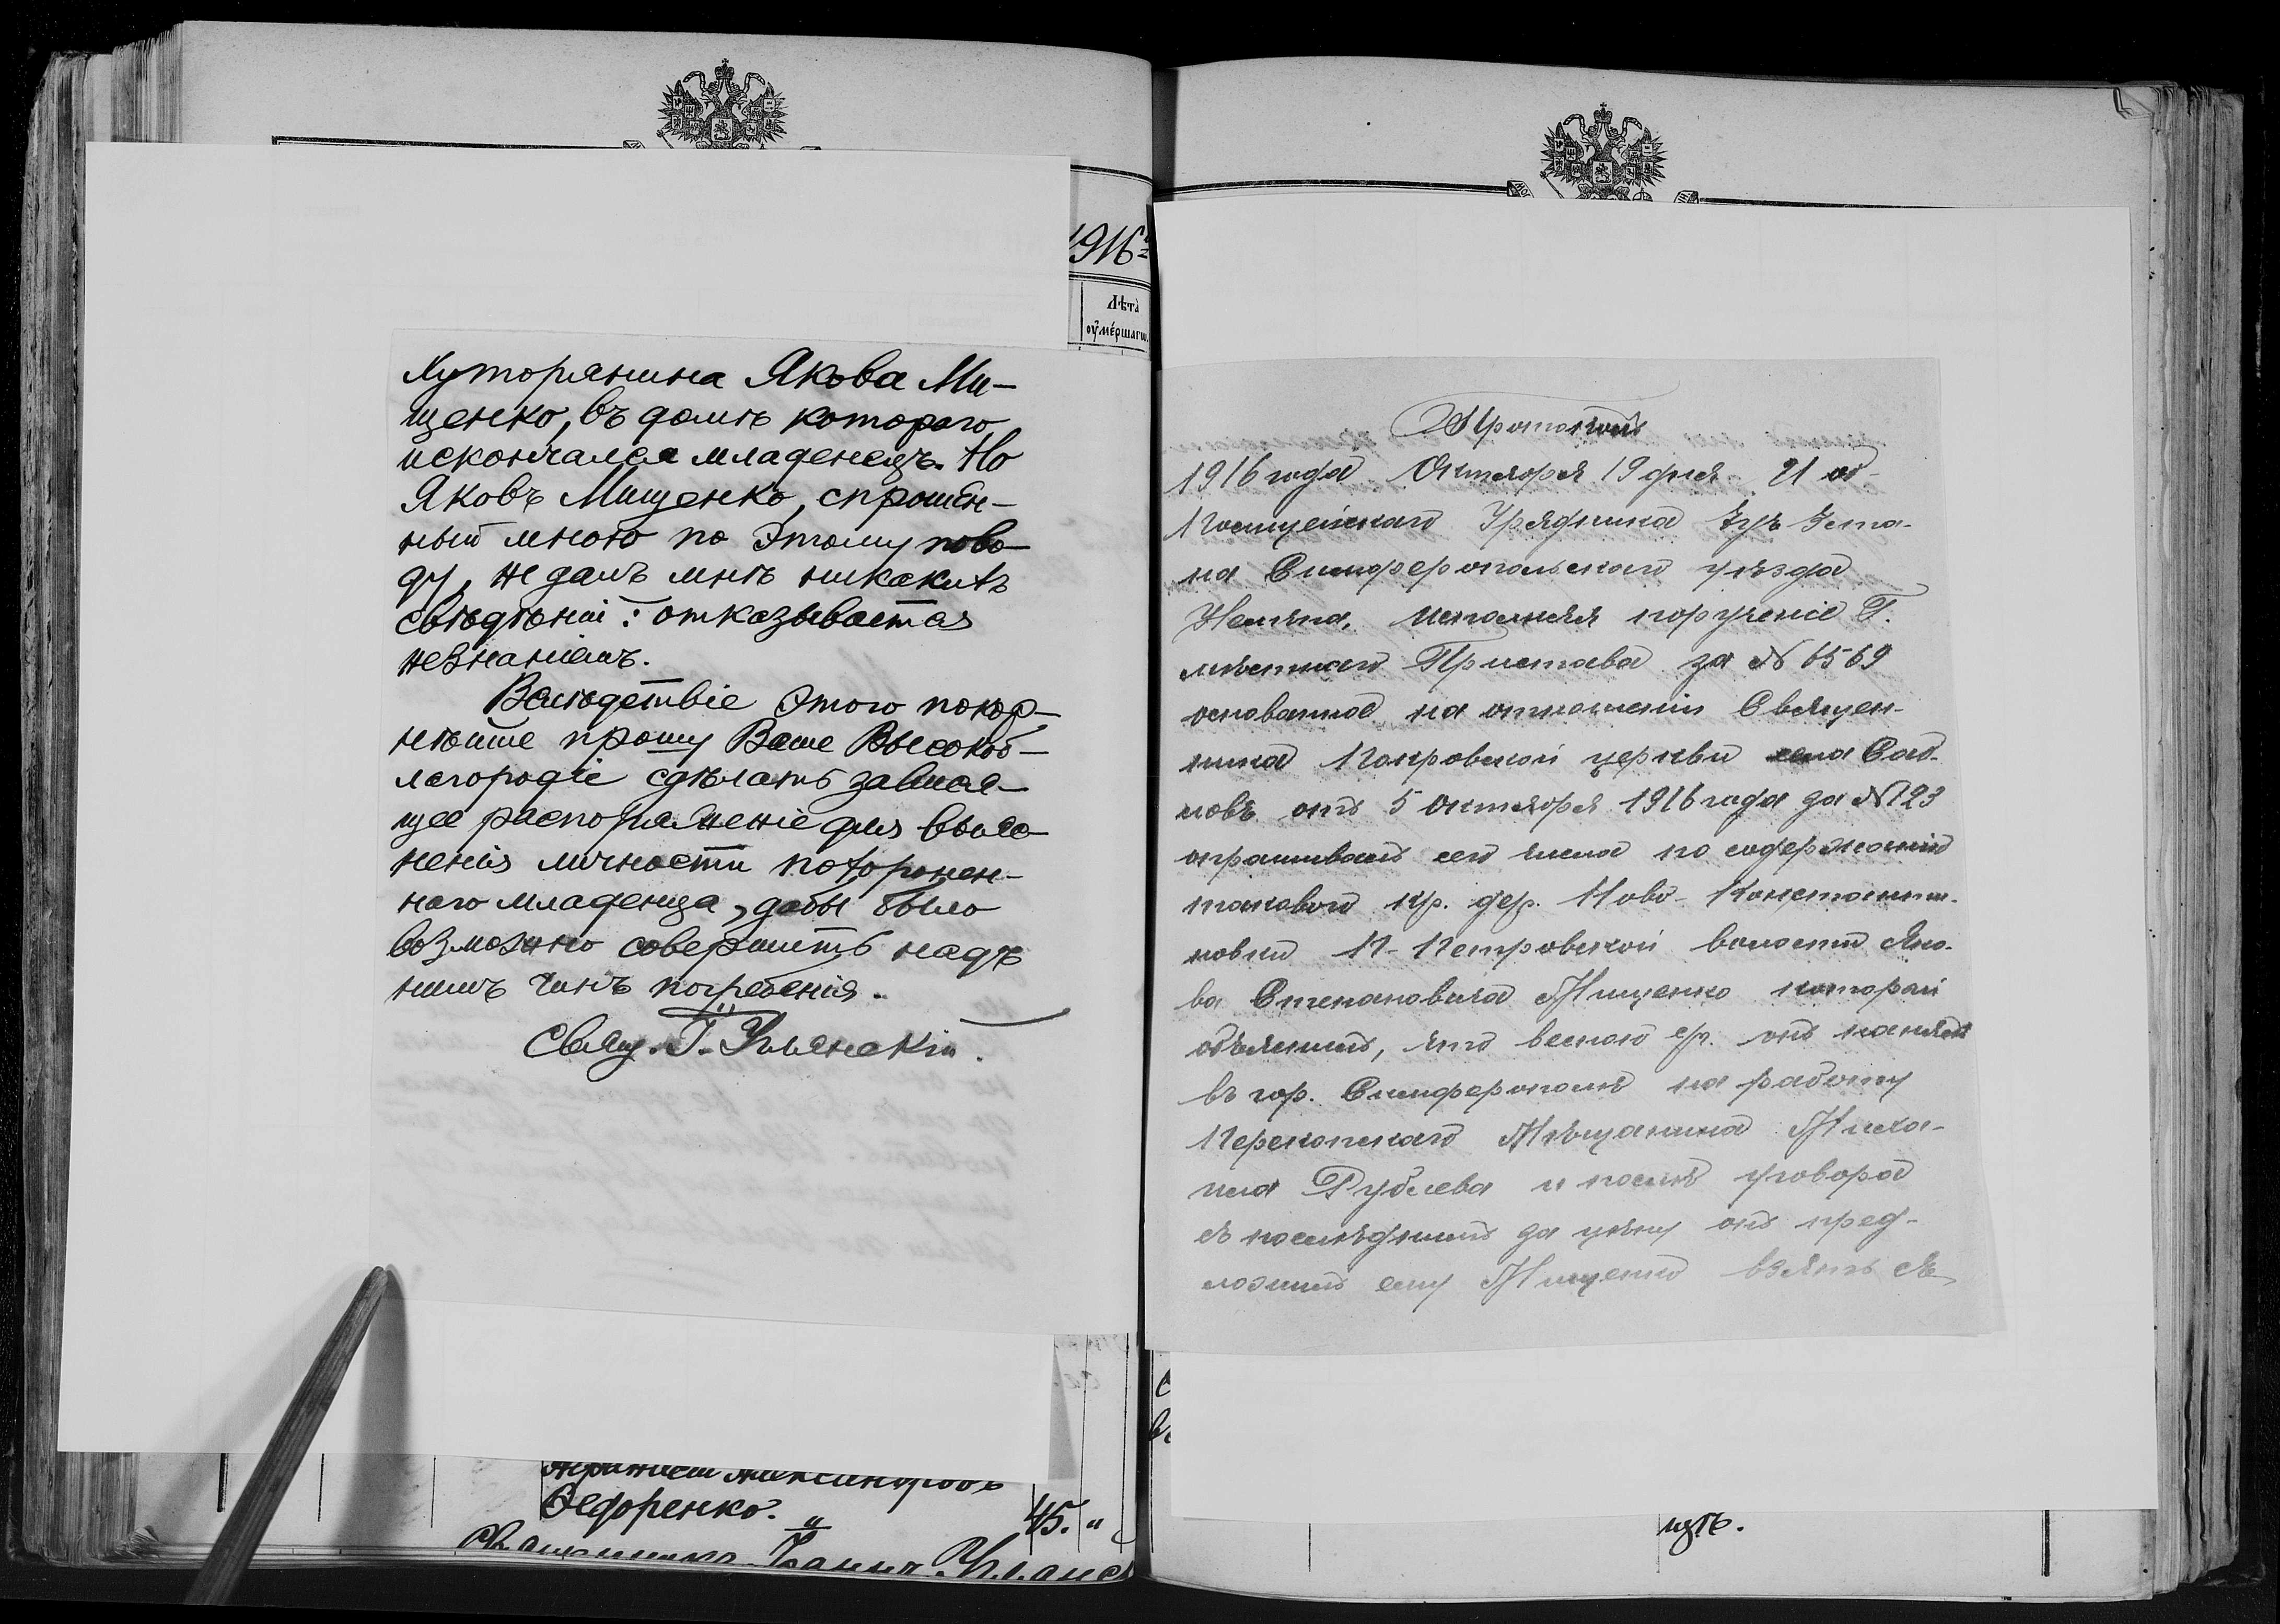 1916
Лѣта
оумершагω
хуторянина Якова Ми-
щенко, въ домѣ котораго
искончался младенецъ. Но
Яковъ Мищенко, спрошен-
ный мною по этому пово-
ду, не далъ мнѣ никакихъ
свѣдѣній: отказывается
незнаніемъ.
Вслѣдствіе этого покор-
нѣйше прошу Ваше Высокоб-
лагородіе сдѣлать завися-
щее распоряженіе для выяс-
ненія личности похоронен-
наго младенца, дабы было
возможно совершить надъ
нимъ чинъ погребенія.
Свящ. І.
Федоренко. 45. "
Протоколъ
1916 года Октября 19 дня Я
Полицейскаго Урядника 3 уч. 3 ста-
на Симферопольскаго уѣзда
исполняя порученіе Г.
мѣстнаго Пристава за № 6569
основанное на отношеніи Священ-
ника Покровской церкви села Сад-
новъ отъ 5 Октября 1916 года за № 123
опрашивалъ сего числа по содержанію
таковой кр. дер. Ново-Константи-
новки П-Петровской волости Яко-
ва Степановича Мищенко который
объяснилъ, что весною с/г. онъ нанялъ
въ гор. Симферополѣ на работу
Перекопскаго Мѣщанина Миха-
ила Рублева и послѣ уговора
съ послѣднимъ за цѣну онъ пред-
ложилъ ему Мищенко взять съ